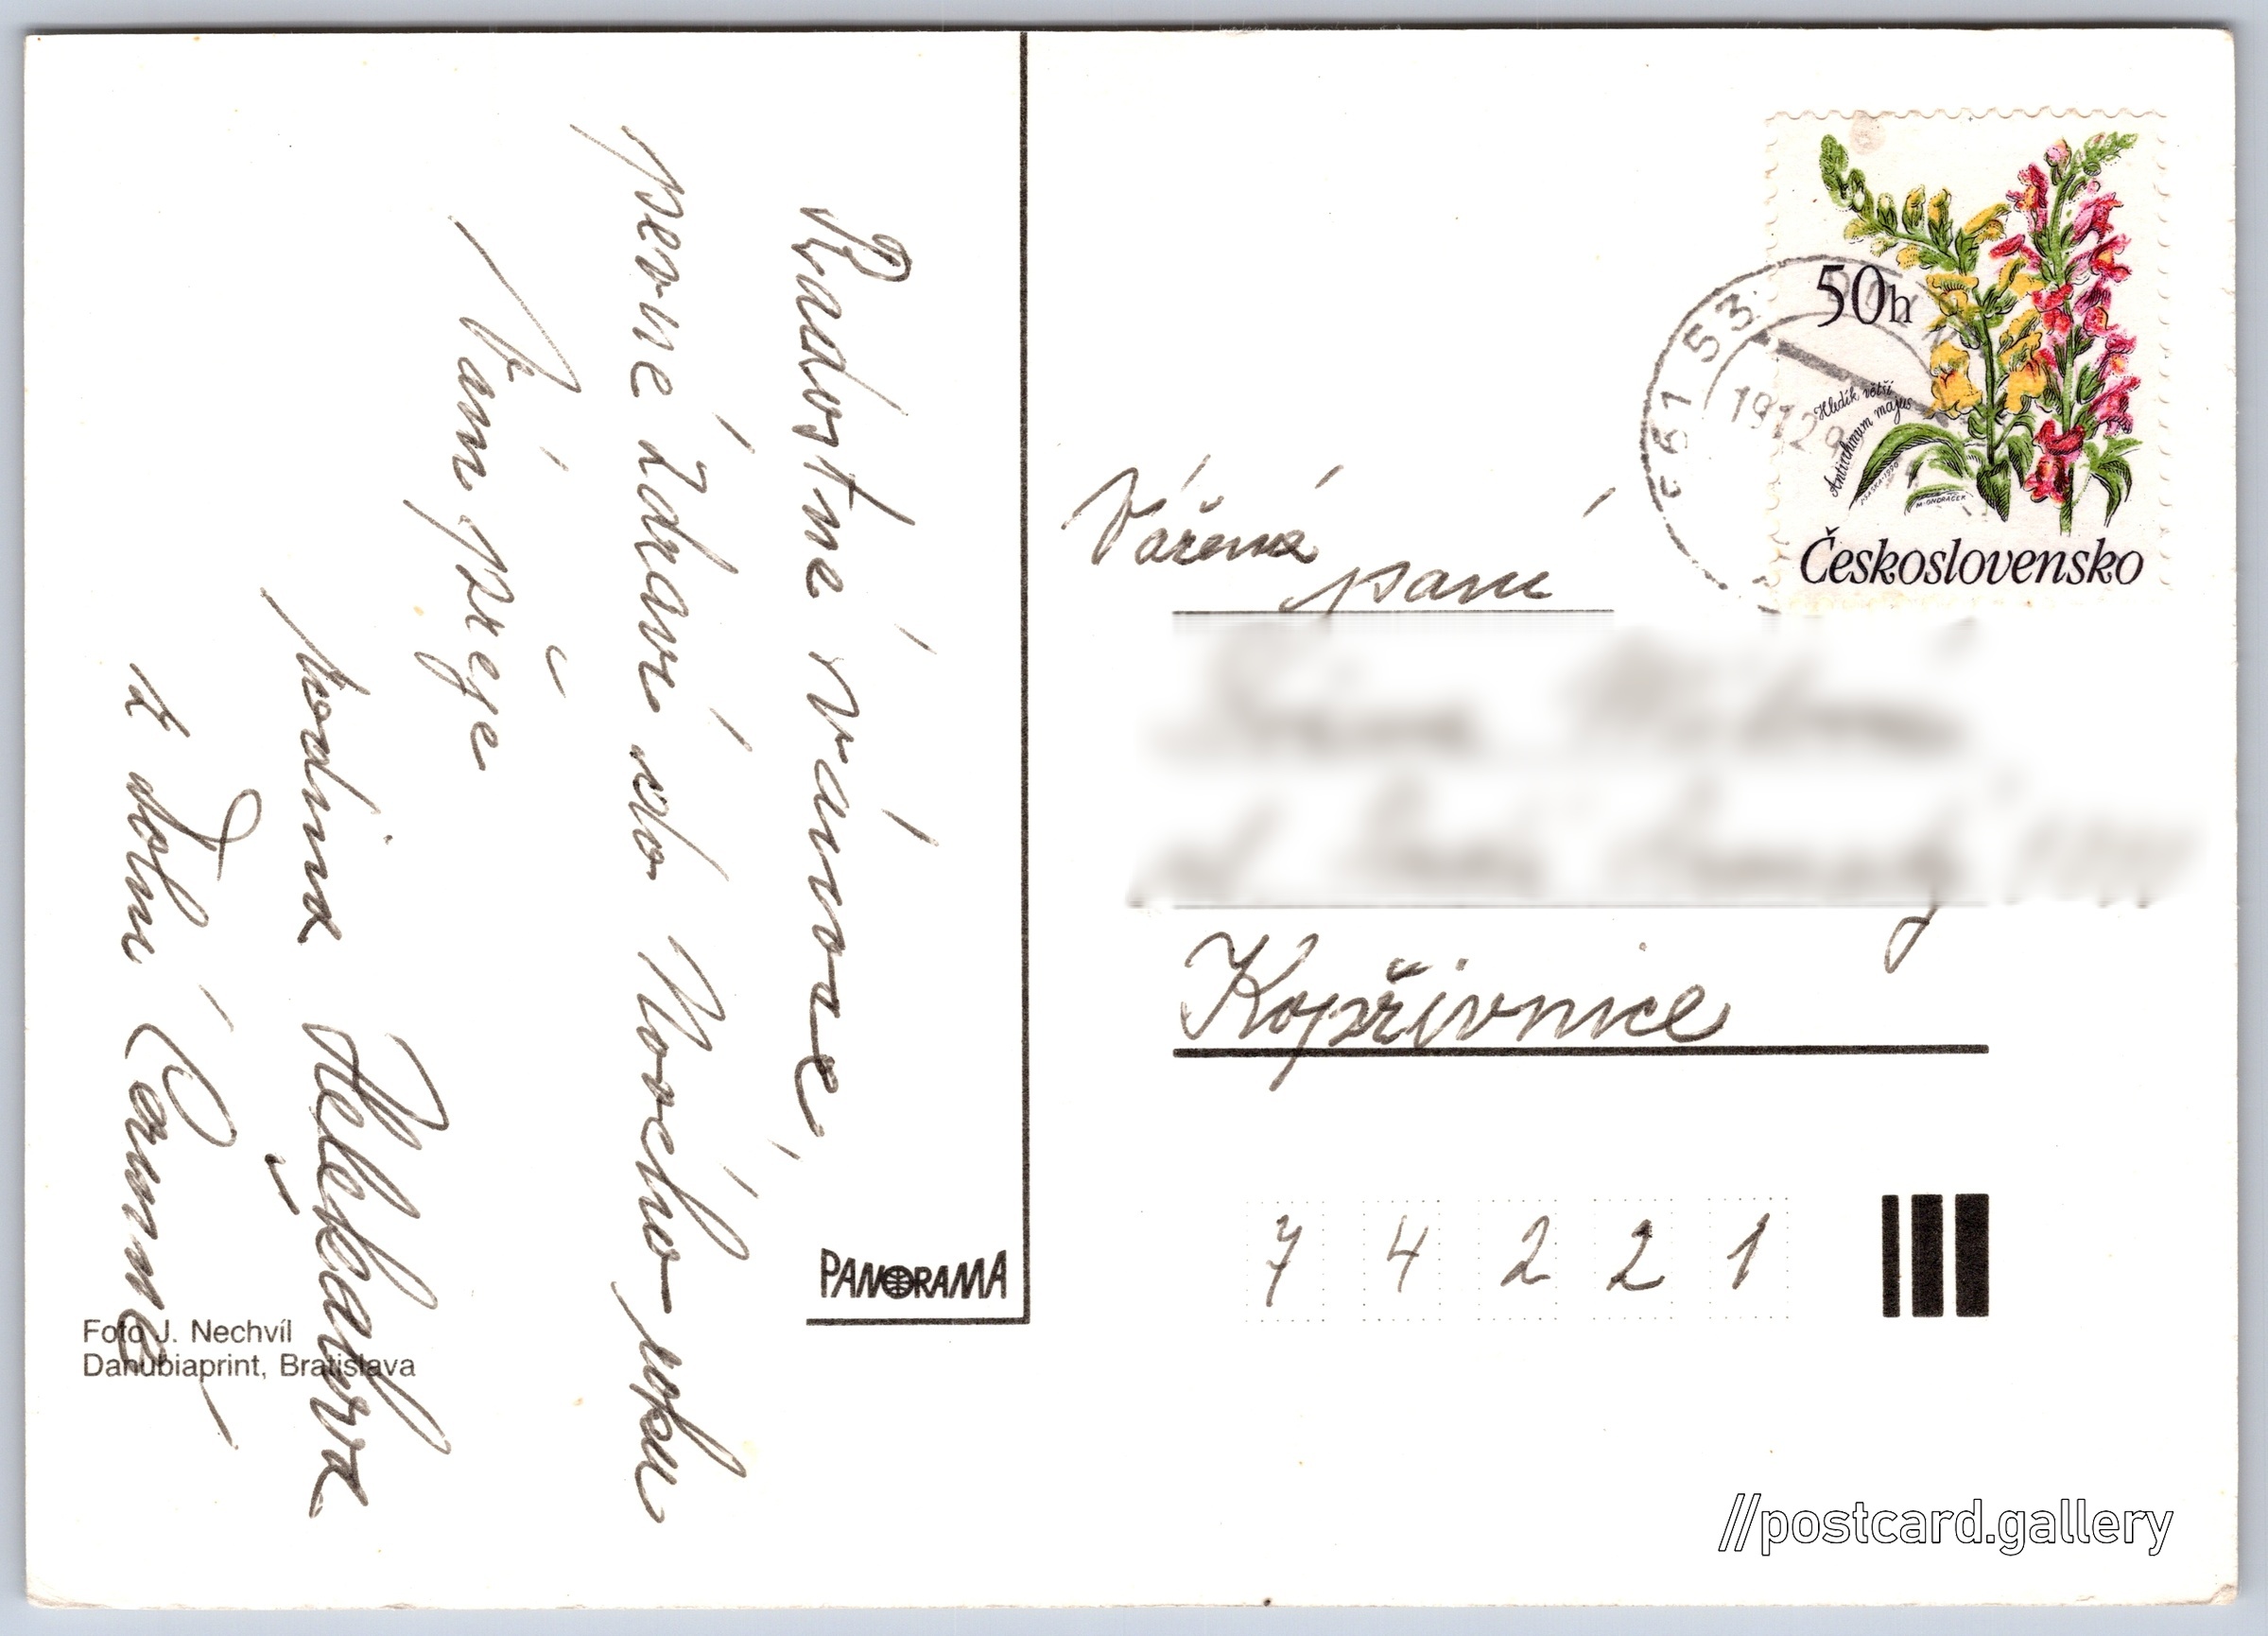 Radostné vánoce,
pevné zdraví do Nového roku
Vám přeje
rodina
z Dolní
PANORAMA
Foto J. Nechvíl
Danubiaprint, Bratislava
50h
Hledík větší
Antirrhinum majus
M. ONDRÁČEK
Československo
Vážená
paní
Kopřivnice
7 4 2 2 1
//postcard.gallery